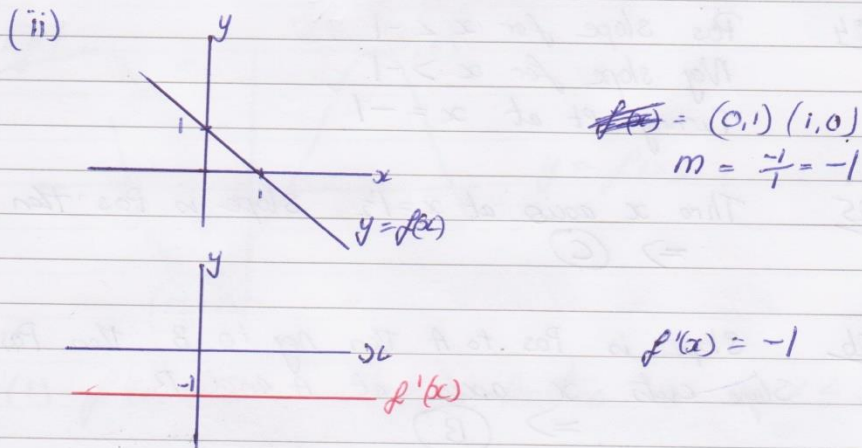 (ii)
y
1
x
1
y = f(x)
f(x) = (0,1) (1,0)
m = -1/1 = -1
y
x
-1
f'(x)
f'(x) = -1